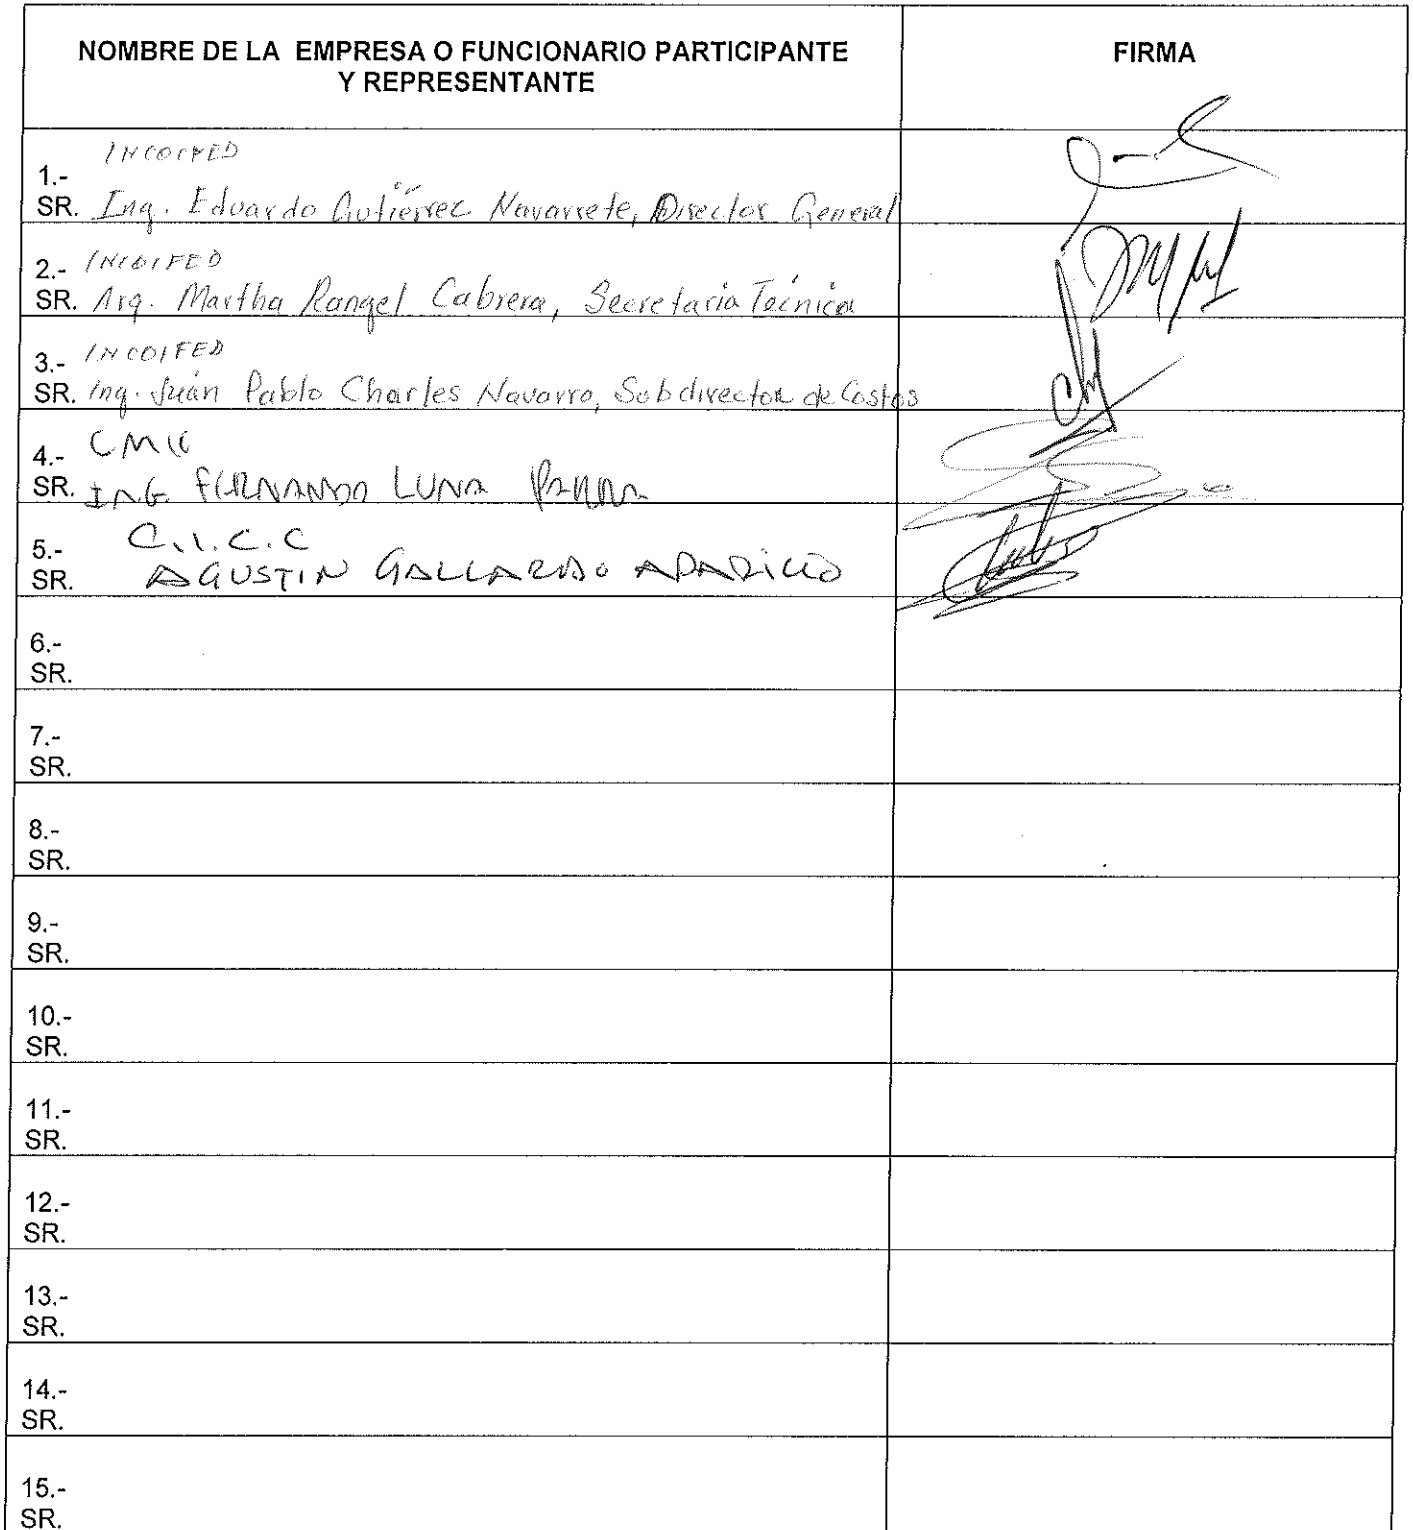 NOMBRE DE LA EMPRESA O FUNCIONARIO PARTICIPANTE
Y REPRESENTANTE
FIRMA
1.- INCOIFED
SR. Ing. Eduardo Gutiérrez Navarrete, Director General
2.- INCOIFED
SR. Arq. Martha Rangel Cabrera, Secretaria Técnica
3.- INCOIFED
SR. Ing. Juán Pablo Charles Navarro, Subdirector de Costos
4.- CMIC
SR. ING FERNANDO LUNA PARRA
5.- C.I.C.C
SR. AGUSTIN GALLARDO APARICIO
6.-
SR.
7.-
SR.
8.-
SR.
9.-
SR.
10.-
SR.
11.-
SR.
12.-
SR.
13.-
SR.
14.-
SR.
15.-
SR.